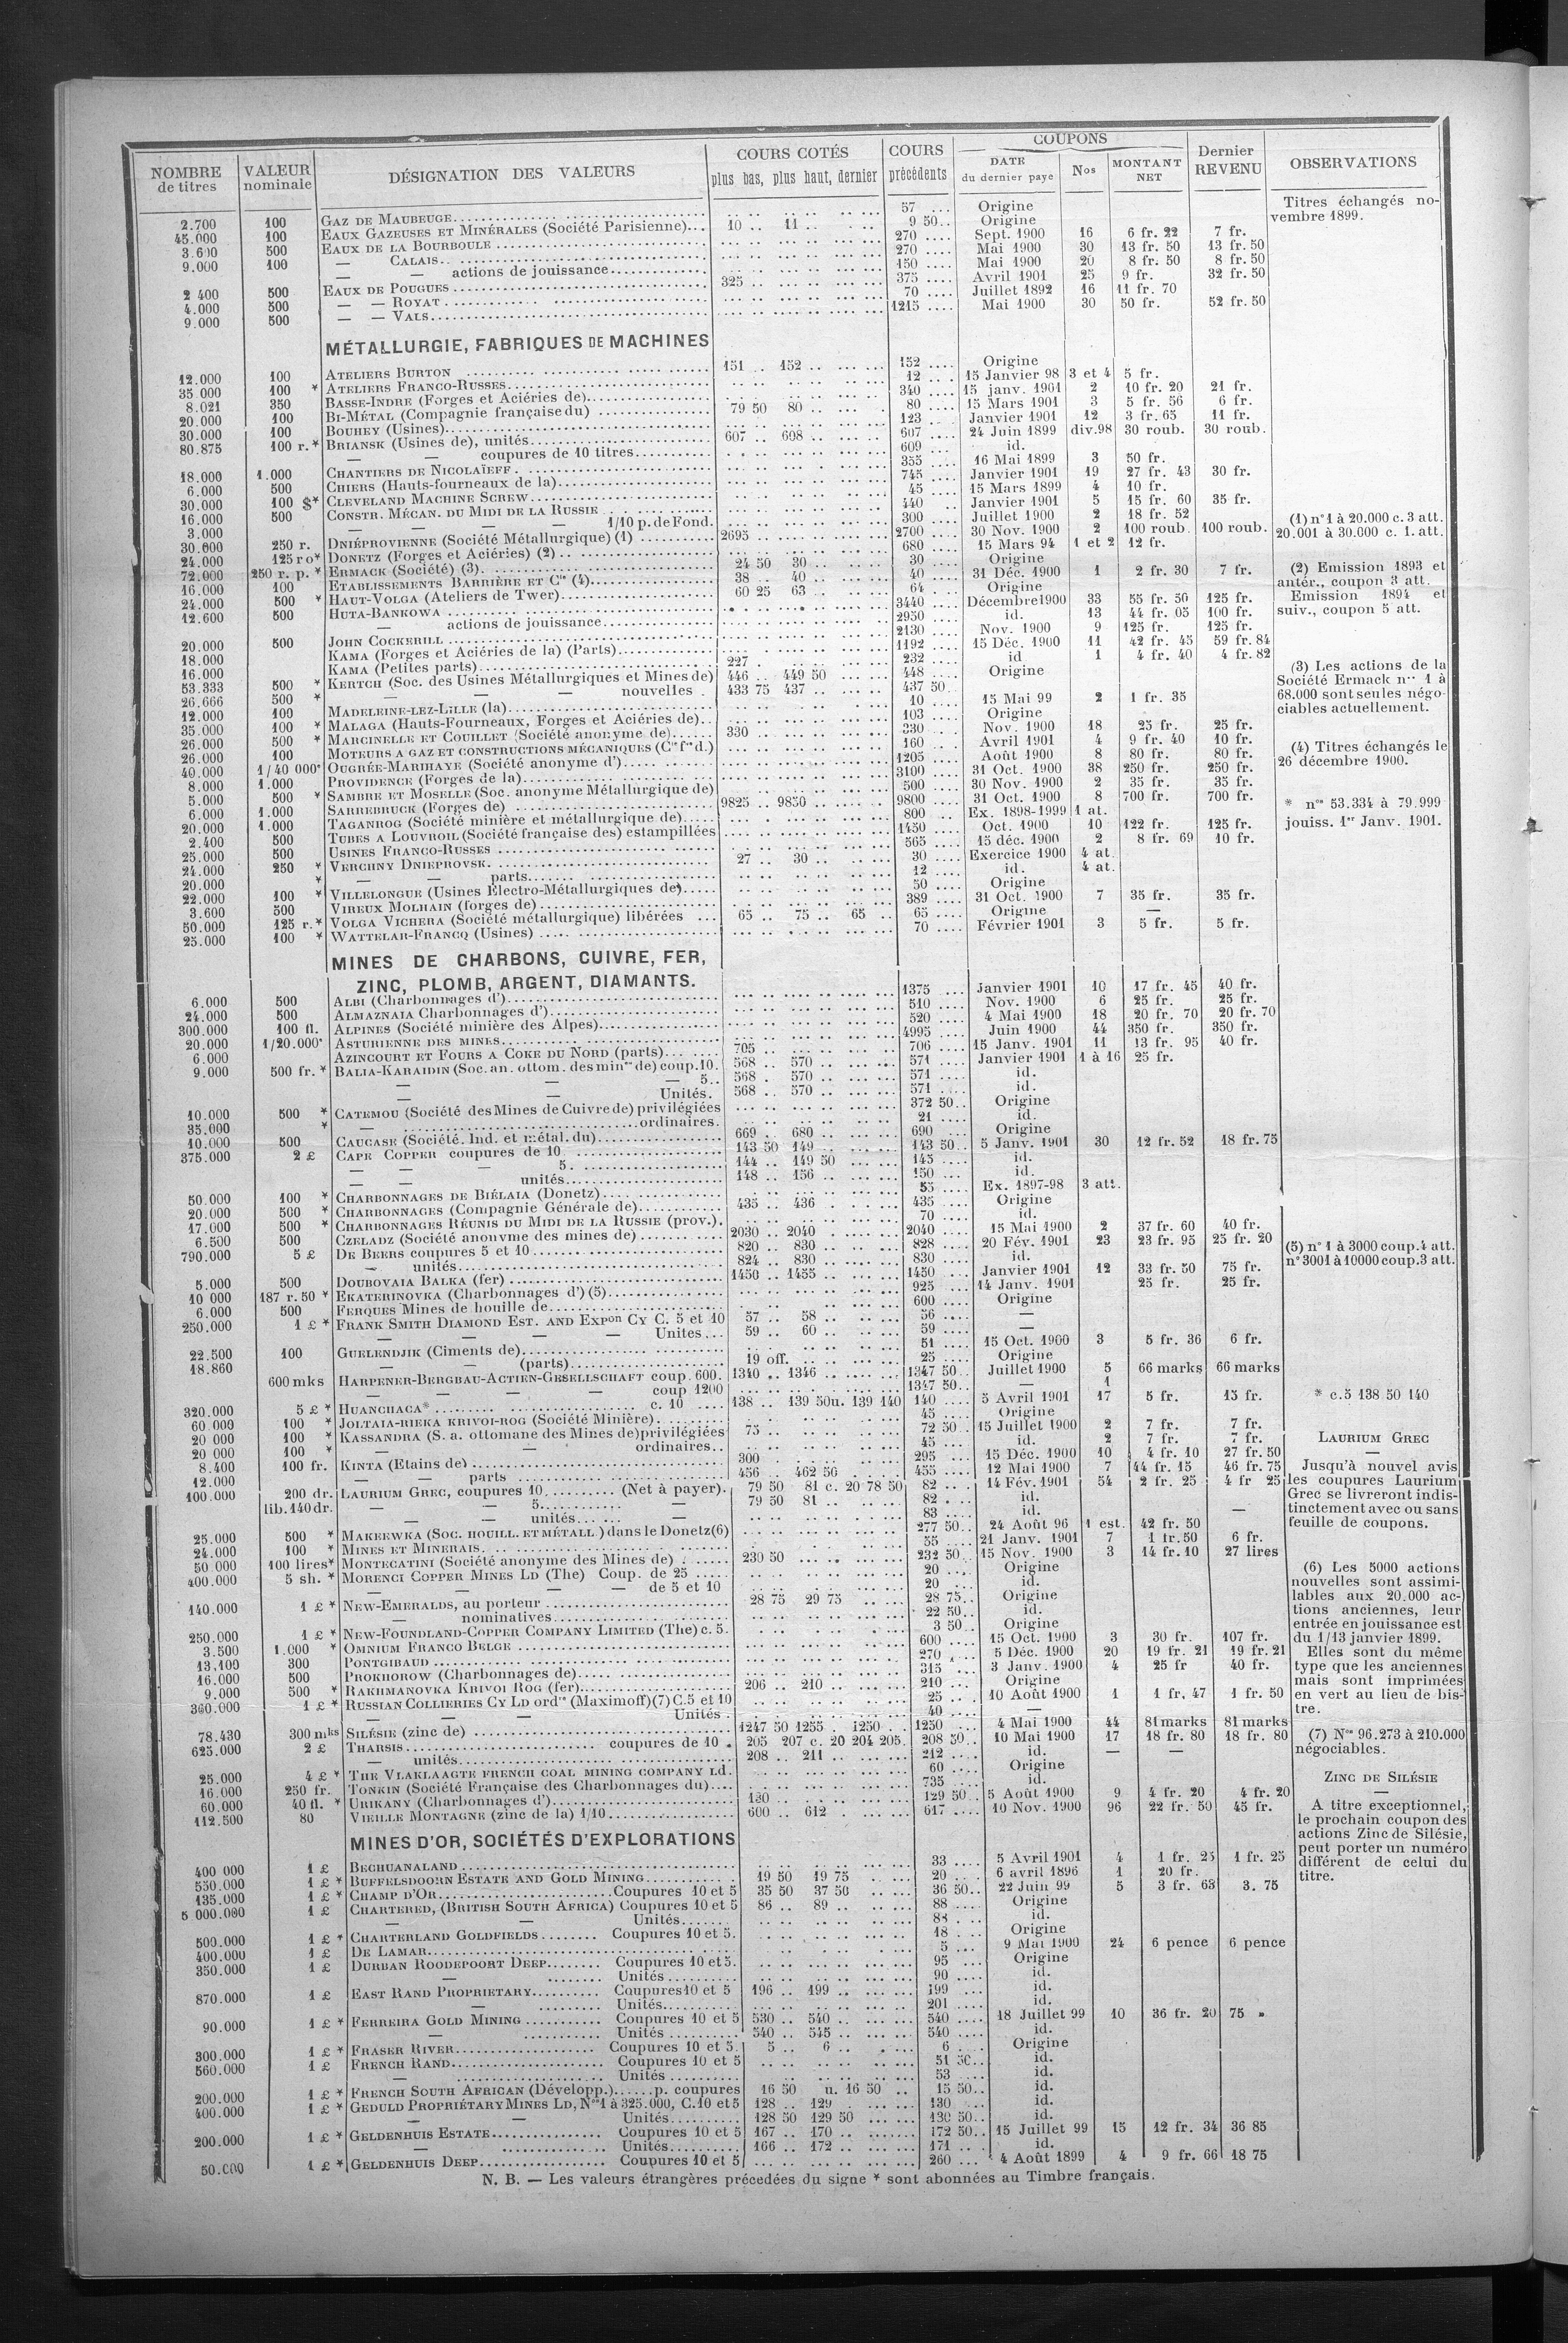 NOMBRE de titres | VALEUR nominale | DÉSIGNATION DES VALEURS | COURS COTÉS plus bas, plus haut, dernier | COURS précédents | COUPONS DATE du dernier paye | Nos | MONTANT NET | Dernier REVENU | OBSERVATIONS
2.700 | 100 | GAZ DE MAUBEUGE | | 57 | Origine
45.000 | 100 | EAUX GAZEUSES ET MINÉRALES (Société Parisienne) | 10 .. 11 | 9 50 | Origine
3.600 | 500 | EAUX DE LA BOURBOULE | | 270 | Sept. 1900 | 16 | 6 fr. 22 | 7 fr.
9.000 | 100 | — CALAIS | | 270 | Mai 1900 | 30 | 13 fr. 50 | 13 fr. 50
— — actions de jouissance | | 150 | Mai 1900 | 20 | 8 fr. 50 | 8 fr. 50
2 400 | 500 | EAUX DE POUGUES | 325 | 375 | Avril 1901 | 25 | 9 fr. | 32 fr. 50
4.000 | 500 | — — ROYAT | | 70 | Juillet 1892 | 16 | 11 fr. 70
9.000 | 500 | — — VALS | | 1215 | Mai 1900 | 30 | 50 fr. | 52 fr. 50
Titres échangés novembre 1899.
MÉTALLURGIE, FABRIQUES DE MACHINES
12.000 | 100 | ATELIERS BURTON | 151 .. 152 | 152 | Origine
35 000 | 100 * | ATELIERS FRANCO-RUSSES | | 12 | 15 Janvier 98 | 3 et 4 | 5 fr.
8.021 | 350 | BASSE-INDRE (Forges et Aciéries de) | | 340 | 15 janv. 1901 | 2 | 10 fr. 20 | 21 fr.
20.000 | 100 | BI-MÉTAL (Compagnie française du) | 79 50 80 | 80 | 15 Mars 1901 | 3 | 5 fr. 56 | 6 fr.
30.000 | 100 | BOUHEY (Usines) | | 123 | Janvier 1901 | 12 | 3 fr. 65 | 11 fr.
80.875 | 100 r.* | BRIANSK (Usines de), unités | 607 .. 608 | 607 | 24 Juin 1899 | div.98 | 30 roub. | 30 roub.
— — coupures de 10 titres | | 609 | id.
18.000 | 1.000 | CHANTIERS DE NICOLAÏEFF | | 355 | 16 Mai 1899 | 3 | 50 fr.
6.000 | 500 | CHIERS (Hauts-fourneaux de la) | | 745 | Janvier 1901 | 19 | 27 fr. 43 | 30 fr.
30.000 | 100 $* | CLEVELAND MACHINE SCREW | | 45 | 15 Mars 1899 | 4 | 10 fr.
16.000 | 500 | CONSTR. MÉCAN. DU MIDI DE LA RUSSIE | | 440 | Janvier 1901 | 5 | 15 fr. 60 | 35 fr.
3.000 | — — — — 1/10 p. de Fond. | | 300 | Juillet 1900 | 2 | 18 fr. 52
30.000 | 250 r. | DNIÉPROVIENNE (Société Métallurgique) (1) | 2695 | 2700 | 30 Nov. 1900 | 2 | 100 roub. | 100 roub.
24.000 | 125 ro* | DONETZ (Forges et Aciéries) (2) | | 680 | 15 Mars 94 | 1 et 2 | 12 fr.
72.000 | 250 r. p. * | ERMACK (Société) (3) | 24 50 30 | 30 | Origine
16.000 | 100 | ETABLISSEMENTS BARRIÈRE ET Cie (4) | 38 .. 40 | 40 | 31 Déc. 1900 | 1 | 2 fr. 30 | 7 fr.
24.000 | 500 * | HAUT-VOLGA (Ateliers de Twer) | 60 25 63 | 64 | Origine
12.600 | 500 | HUTA-BANKOWA | | 3440 | Décembre 1900 | 33 | 55 fr. 50 | 125 fr.
— actions de jouissance | | 2950 | id. | 13 | 44 fr. 05 | 100 fr.
20.000 | 500 | JOHN COCKERILL | | 2130 | Nov. 1900 | 9 | 125 fr. | 125 fr.
18.000 | KAMA (Forges et Aciéries de la) (Parts) | | 1192 | 15 Déc. 1900 | 11 | 42 fr. 45 | 59 fr. 84
16.000 | KAMA (Petites parts) | 227 | 232 | id | 1 | 4 fr. 40 | 4 fr. 82
53.333 | 500 * | KERTCH (Soc. des Usines Métallurgiques et Mines de) | 446 .. 449 50 | 448 | Origine
26.666 | 500 * | — — — nouvelles | 433 75 437 | 437 50
12.000 | 100 | MADELEINE-LEZ-LILLE (la) | | 10 | 15 Mai 99 | 2 | 1 fr. 35
35.000 | 100 * | MALAGA (Hauts-Fourneaux, Forges et Aciéries de) | | 103 | Origine
26.000 | 500 * | MARCINELLE ET COUILLET (Société anonyme de) | 330 | 330 | Nov. 1900 | 18 | 25 fr. | 25 fr.
26.000 | 100 | MOTEURS A GAZ ET CONSTRUCTIONS MÉCANIQUES (Cie fse d.) | | 160 | Avril 1901 | 4 | 9 fr. 40 | 10 fr.
40.000 | 1/40 000e | OUGRÉE-MARIHAYE (Société anonyme d') | | 1205 | Août 1900 | 8 | 80 fr. | 80 fr.
8.000 | 1.000 | PROVIDENCE (Forges de la) | | 3100 | 31 Oct. 1900 | 38 | 250 fr. | 250 fr.
5.000 | 500 * | SAMBRE ET MOSELLE (Soc. anonyme Métallurgique de) | | 500 | 30 Nov. 1900 | 2 | 35 fr. | 35 fr.
6.000 | 1.000 | SARREBRUCK (Forges de) | 9825 .. 9850 | 9800 | 31 Oct. 1900 | 8 | 700 fr. | 700 fr.
20.000 | 1.000 | TAGANROG (Société minière et métallurgique de) | | 800 | Ex. 1898-1999 | 1 at.
2.400 | 500 | TUBES A LOUVROIL (Société française des) estampillées | | 1450 | Oct. 1900 | 10 | 122 fr. | 125 fr.
25.000 | 500 | USINES FRANCO-RUSSES | | 565 | 15 déc. 1900 | 2 | 8 fr. 69 | 10 fr.
24.000 | 250 * | VERCHNY DNIEPROVSK | 27 .. 30 | 30 | Exercice 1900 | 4 at.
20.000 | * | — — parts | | 12 | id. | 4 at.
22.000 | 100 * | VILLELONGUE (Usines Électro-Métallurgiques de) | | 50 | Origine
3.600 | 500 | VIREUX MOLHAIN (forges de) | | 389 | 31 Oct. 1900 | 7 | 35 fr. | 35 fr.
50.000 | 125 r.* | VOLGA VICHERA (Société métallurgique) libérées | 65 .. 75 .. 65 | 65 | Origine | —
25.000 | 100 * | WATTELAR-FRANCQ (Usines) | | 70 | Février 1901 | 3 | 5 fr. | 5 fr.
(1) n° 1 à 20.000 c. 3 att.
20.001 à 30.000 c. 1. att.
(2) Emission 1893 et
antér., coupon 3 att.
Emission 1894 et
suiv., coupon 5 att.
(3) Les actions de la
Société Ermack nos 1 à
68.000 sont seules négociables actuellement.
(4) Titres échangés le
26 décembre 1900.
* nos 53.334 à 79.999
jouiss. 1er Janv. 1901.
MINES DE CHARBONS, CUIVRE, FER,
ZINC, PLOMB, ARGENT, DIAMANTS.
6.000 | 500 | ALBI (Charbonnages d') | | 1375 | Janvier 1901 | 10 | 17 fr. 45 | 40 fr.
24.000 | 500 | ALMAZNAIA Charbonnages d') | | 510 | Nov. 1900 | 6 | 25 fr. | 25 fr.
300.000 | 100 fl. | ALPINES (Société minière des Alpes) | | 520 | 4 Mai 1900 | 18 | 20 fr. 70 | 20 fr. 70
20.000 | 1/20.000e | ASTURIENNE DES MINES | | 4995 | Juin 1900 | 44 | 350 fr. | 350 fr.
6.000 | AZINCOURT ET FOURS A COKE DU NORD (parts) | 705 | 706 | 15 Janv. 1901 | 11 | 13 fr. 95 | 40 fr.
9.000 | 500 fr. * | BALIA-KARAIDIN (Soc. an. ottom. des mines de) coup. 10. | 568 .. 570 | 571 | Janvier 1901 | 1 à 16 | 25 fr.
— — 5.. | 568 . 570 | 571 | id.
— — Unités. | 568 .. 570 | 571 | id.
10.000 | 500 * | CATEMOU (Société des Mines de Cuivre de) privilégiées | | 372 50 | Origine
35.000 | * | — ordinaires. | | 21 | id.
10.000 | 500 | CAUCASE (Société. Ind. et métal. du) | 669 .. 680 | 690 | Origine
375.000 | 2 £ | CAPE COPPER coupures de 10 | 143 50 149 | 143 50 | 5 Janv. 1901 | 30 | 12 fr. 52 | 18 fr. 75
— — — 5. | 144 .. 149 50 | 145 | id.
— — unités | 148 .. 156 | 150 | id.
50.000 | 100 * | CHARBONNAGES DE BIÉLAIA (Donetz) | | 55 | Ex. 1897-98 | 3 att.
20.000 | 500 * | CHARBONNAGES (Compagnie Générale de) | 435 .. 436 | 435 | Origine
17.000 | 500 * | CHARBONNAGES RÉUNIS DU MIDI DE LA RUSSIE (prov.). | | 70 | id.
6.500 | 500 | CZELADZ (Société anonyme des mines de) | 2030 .. 2040 | 2040 | 15 Mai 1900 | 2 | 37 fr. 60 | 40 fr.
790.000 | 5 £ | DE BEERS coupures 5 et 10 | 820 .. 830 | 828 | 20 Fév. 1901 | 23 | 23 fr. 95 | 25 fr. 20
— unités | 824 .. 830 | 830 | id.
5.000 | 500 | DOUBOVAIA BALKA (fer) | 1450 .. 1455 | 1450 | Janvier 1901 | 12 | 33 fr. 50 | 75 fr.
10 000 | 187 r. 50 * | EKATERINOVKA (Charbonnages d') (5) | | 925 | 14 Janv. 1901 | | 25 fr. | 25 fr.
6.000 | 500 | FERQUES Mines de houille de | | 600 | Origine
250.000 | 1 £ * | FRANK SMITH DIAMOND EST. AND EXPon CY C. 5 et 10 | 57 .. 58 | 56 | —
— — — — Unites | 59 .. 60 | 59 | —
22.500 | 100 | GUELENDJIK (Ciments de) | | 51 | 15 Oct. 1900 | 3 | 5 fr. 36 | 6 fr.
18.860 | — (parts) | 19 off. | 25 | Origine
600 mks | HARPENER-BERGBAU-ACTIEN-GESELLSCHAFT coup. 600. | 1340 .. 1346 | 1347 50 | Juillet 1900 | 5 | 66 marks | 66 marks
— — — — coup 1200 | | 1347 50 | — | 1
320.000 | 5 £ * | HUANCHACA* c. 10 | 138 .. 139 50 u. 139 140 | 140 | 5 Avril 1901 | 17 | 5 fr. | 15 fr.
60.000 | 100 * | JOLTAIA-RIEKA KRIVOI-ROG (Société Minière) | | 45 | Origine
20 000 | 100 * | KASSANDRA (S. a. ottomane des Mines de) privilégiées | 75 | 72 50 | 15 Juillet 1900 | 2 | 7 fr. | 7 fr.
20 000 | 100 * | — — ordinaires | | 45 | id. | 2 | 7 fr. | 7 fr.
8.400 | 100 fr. | KINTA (Etains de) | 300 | 295 | 15 Déc. 1900 | 10 | 4 fr. 10 | 27 fr. 50
12.000 | — — parts | 456 .. 462 50 | 455 | 12 Mai 1900 | 7 | 44 fr. 15 | 46 fr. 75
100.000 | 200 dr. | LAURIUM GREC, coupures 10 (Net à payer). | 79 50 81 c. 20 78 50 | 82 | 14 Fév. 1901 | 54 | 2 fr. 25 | 4 fr 25
lib. 140 dr. | — — 5 — | 79 50 81 | 82 | id.
— — unités — | | 83 | id. | —
25.000 | 500 * | MAKEEWKA (SOC. HOUILL. ET MÉTALL.) dans le Donetz (6) | | 277 50 | 24 Août 96 | 1 est. | 42 fr. 50
24.000 | 100 * | MINES ET MINERAIS | | 55 | 21 Janv. 1901 | 7 | 1 fr. 50 | 6 fr.
50 000 | 100 lires* | MONTECATINI (Société anonyme des Mines de) | 230 50 | 232 50 | 15 Nov. 1900 | 3 | 14 fr. 10 | 27 lires
400.000 | 5 sh. * | MORENCI COPPER MINES LD (The) Coup. de 25 | | 20 | Origine
— — — — de 5 et 10 | | 20 | id.
140.000 | 1 £ * | NEW-EMERALDS, au porteur | 28 75 29 75 | 28 75 | Origine
— nominatives | | 22 50 | id.
250.000 | 1 £ * | NEW-FOUNDLAND-COPPER COMPANY LIMITED (The) c. 5. | | 3 50 | Origine
3.500 | 1.000 * | OMNIUM FRANCO BELGE | | 600 | 15 Oct. 1900 | 3 | 30 fr. | 107 fr.
13.109 | 300 | PONTGIBAUD | | 270 | 5 Déc. 1900 | 20 | 19 fr. 21 | 19 fr. 21
16.000 | 500 | PROKHOROW (Charbonnages de) | | 315 | 3 Janv. 1900 | 4 | 25 fr | 40 fr.
9.000 | 500 * | RAKHMANOVKA KRIVOI ROG (fer) | 206 .. 210 | 210 | Origine
360.000 | 1 £ * | RUSSIAN COLLIERIES CY LD ordres (Maximoff) (7) C. 5 et 10 | | 25 | 10 Août 1900 | 1 | 1 fr. 47 | 1 fr. 50
— — — Unités | | 40 | —
78.430 | 300 mks | SILÉSIE (zinc de) | 1247 50 1255 . 1250 | 1250 | 4 Mai 1900 | 44 | 81 marks | 81 marks
625.000 | 2 £ | THARSIS coupures de 10 | 205 207 c. 20 204 205. | 208 50 | 10 Mai 1900 | 17 | 18 fr. 80 | 18 fr. 80
— unités | 208 .. 211 | 212 | id. | — | —
25.000 | 4 £ * | THE VLAKLAAGTE FRENCH COAL MINING COMPANY Ld. | | 60 | Origine
16.000 | 250 fr. | TONKIN (Société Française des Charbonnages du) | | 735 | id.
60.000 | 40 fl. * | URIKANY (Charbonnages d') | 130 | 129 50 | 5 Août 1900 | 9 | 4 fr. 20 | 4 fr. 20
112.500 | 80 | VIEILLE MONTAGNE (zinc de la) 1/10 | 600 .. 612 | 617 | 10 Nov. 1900 | 96 | 22 fr. 50 | 45 fr.
(5) n° 1 à 3000 coup. 4 att.
n° 3001 à 10000 coup. 3 att.
* c. 5 138 50 140
LAURIUM GREC
—
Jusqu'à nouvel avis
les coupures Laurium
Grec se livreront indistinctement avec ou sans
feuille de coupons.
(6) Les 5000 actions
nouvelles sont assimilables aux 20.000 actions anciennes, leur
entrée en jouissance est
du 1/13 janvier 1899.
Elles sont du même
type que les anciennes
mais sont imprimées
en vert au lieu de bistre.
(7) Nos 96.273 à 210.000
négociables.
ZINC DE SILÉSIE
—
A titre exceptionnel,
le prochain coupon des
actions Zinc de Silésie,
peut porter un numéro
différent de celui du
titre.
MINES D'OR, SOCIÉTÉS D'EXPLORATIONS
400 000 | 1 £ | BECHUANALAND | | 33 | 5 Avril 1901 | 4 | 1 fr. 25 | 1 fr. 25
550.000 | 1 £ * | BUFFELSDOORN ESTATE AND GOLD MINING | 19 50 19 75 | 20 | 6 avril 1896 | 1 | 20 fr.
135.000 | 1 £ * | CHAMP D'OR Coupures 10 et 5 | 35 50 37 50 | 36 50 | 22 Juin 99 | 5 | 3 fr. 63 | 3. 75
5 000.000 | 1 £ | CHARTERED, (BRITISH SOUTH AFRICA) Coupures 10 et 5 | 86 .. 89 | 88 | Origine
— — Unités | | 88 | id.
500.000 | 1 £ * | CHARTERLAND GOLDFIELDS Coupures 10 et 5. | | 18 | Origine
400.000 | 1 £ | DE LAMAR | | 5 | 9 Mai 1900 | 24 | 6 pence | 6 pence
350.000 | 1 £ | DURBAN ROODEPOORT DEEP Coupures 10 et 5. | | 95 | Origine
— Unités | | 90 | id.
870.000 | 1 £ | EAST RAND PROPRIETARY Coupures 10 et 5 | 196 .. 199 | 199 | id.
— Unités | | 201 | id.
90.000 | 1 £ * | FERREIRA GOLD MINING Coupures 10 et 5 | 530 .. 540 | 540 | 18 Juillet 99 | 10 | 36 fr. 20 | 75 »
— Unités | 540 .. 545 | 540 | id.
300.000 | 1 £ * | FRASER RIVER Coupures 10 et 5. | 5 .. 6 | 6 | Origine
560.000 | 1 £ | FRENCH RAND Coupures 10 et 5 | | 51 50 | id.
— Unités | | 53 | id.
200.000 | 1 £ * | FRENCH SOUTH AFRICAN (Développ.) p. coupures | 16 50 u. 16 50 | 15 50 | id.
400.000 | 1 £ * | GEDULD PROPRIÉTARY MINES LD, Nos 1 à 325.000, C. 10 et 5 | 128 .. 129 | 130 | id.
— — Unités | 128 50 129 50 | 130 50 | id.
200.000 | 1 £ * | GELDENHUIS ESTATE Coupures 10 et 5 | 167 .. 170 | 172 50 | 15 Juillet 99 | 15 | 12 fr. 34 | 36 85
— Unités | 166 .. 172 | 171 | id.
50.000 | 1 £ * | GELDENHUIS DEEP Coupures 10 et 5 | | 260 | 4 Août 1899 | 4 | 9 fr. 66 | 18 75
N. B. — Les valeurs étrangères précedées du signe * sont abonnées au Timbre français.